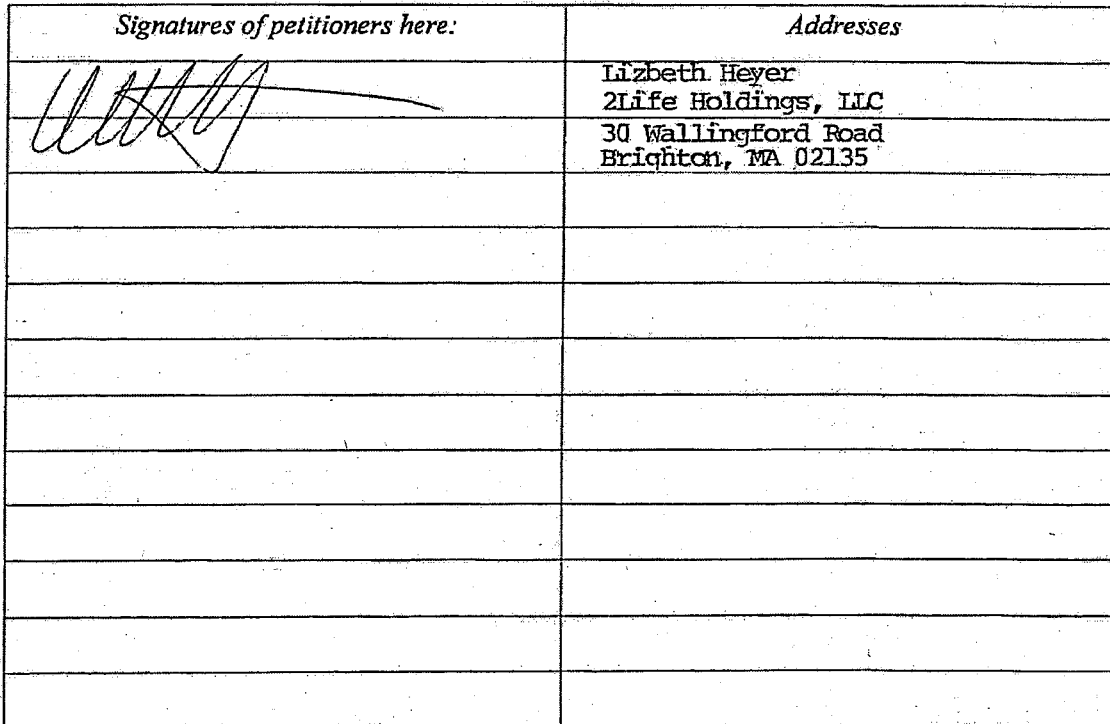 Signatures of petitioners here:
Addresses
Lizbeth Heyer
2Life Holdings, LLC
30 Wallingford Road
Brighton, MA 02135